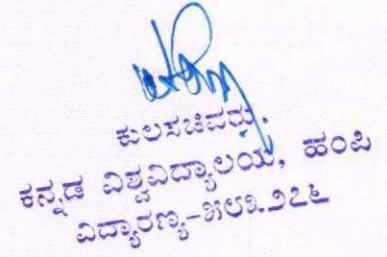 ಕುಲಸಚಿವರು,
ಕನ್ನಡ ವಿಶ್ವವಿದ್ಯಾಲಯ, ಹಂಪಿ
ವಿದ್ಯಾರಣ್ಯ-೫೮೩೨೭೬